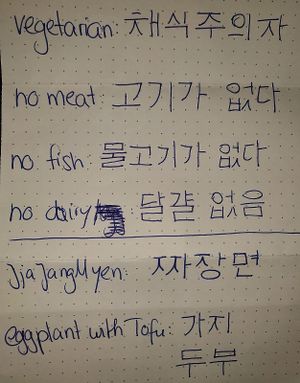 vegetarian: 채식주의자
no meat: 고기가 없다
no fish: 물고기가 없다
no dairy: 달걀 없음
JjaJangMyen: 짜장면
eggplant with Tofu: 가지
두부